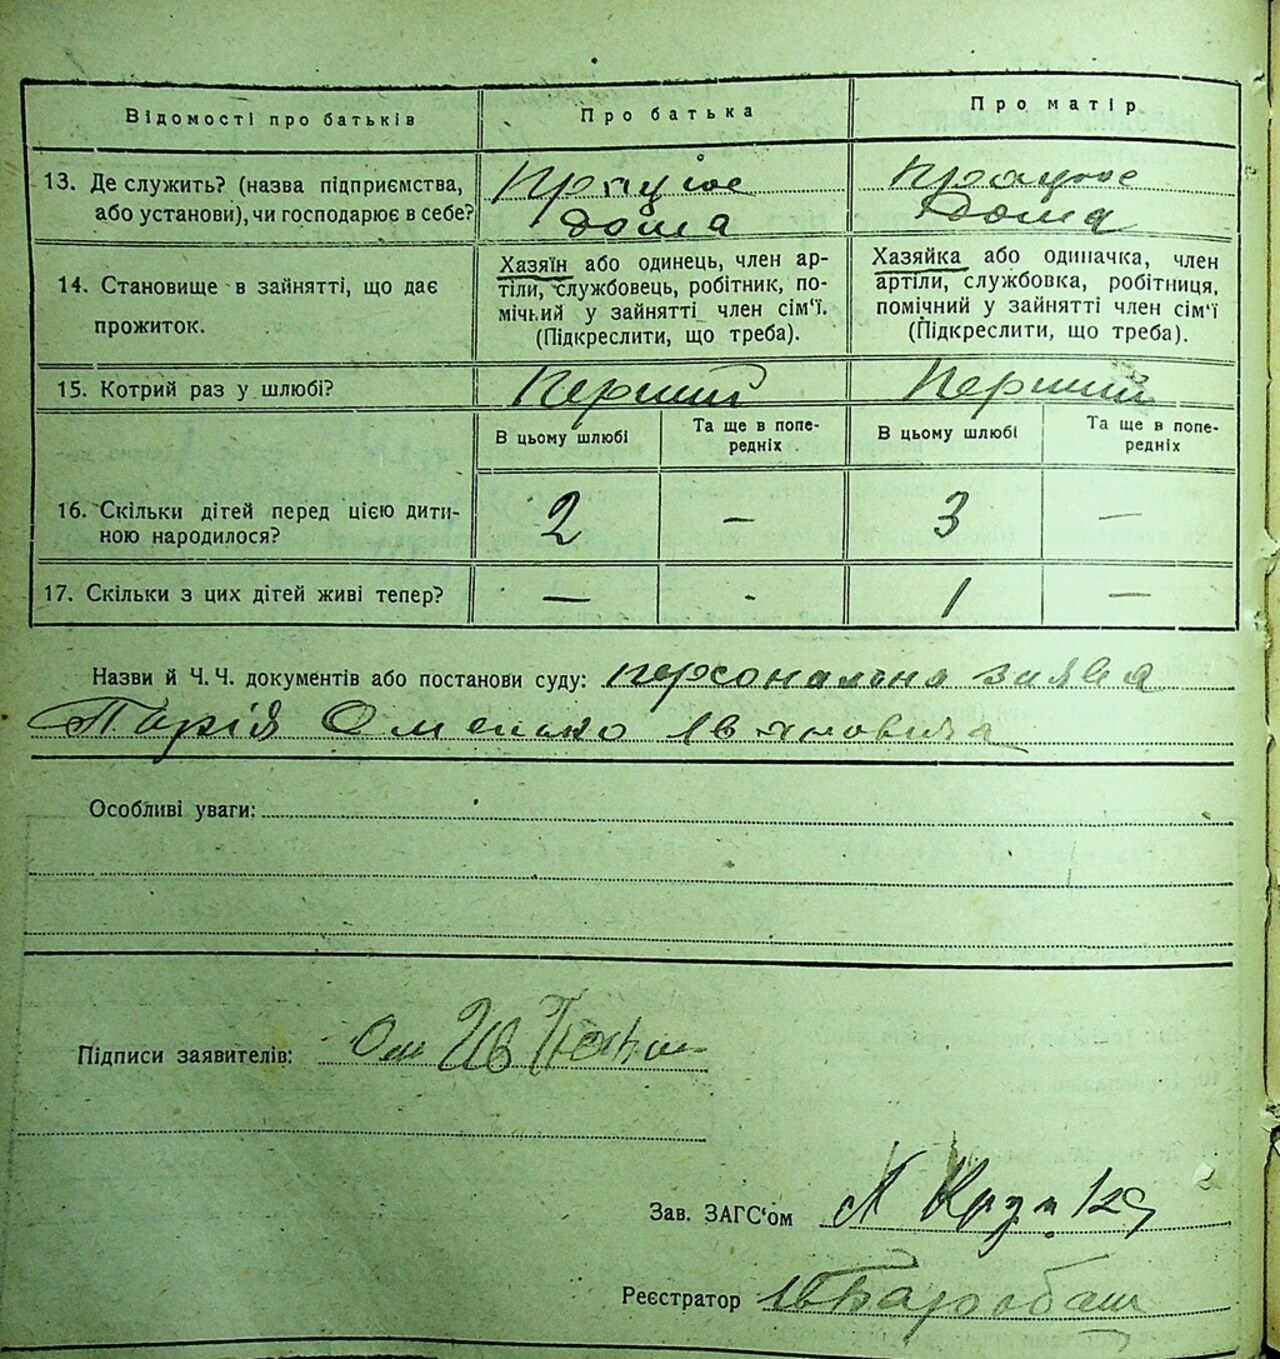 Відомості про батьків
Про батька
Про матір
13. Де служить? (назва підприємства,
або установи), чи господарює в себе?
Працює
дома
Працює
дома
14. Становище в зайнятті, що дає
прожиток.
Хазяїн або одинець, член ар-
тіли, службовець, робітник, по-
мічний у зайнятті член сім'ї.
(Підкреслити, що треба).
Хазяйка або одиначка, член
артіли, службовка, робітниця,
помічний у зайнятті член сім'ї
(Підкреслити, що треба).
15. Котрий раз у шлюбі?
Перший
Перший
В цьому шлюбі
Та ще в попе-
редніх
В цьому шлюбі
Та ще в попе-
редніх
16. Скільки дітей перед цією дити-
ною народилося?
2
—
3
—
17. Скільки з цих дітей живі тепер?
—
-
1
—
Назви й Ч. Ч. документів або постанови суду: персональна заява
Омелько Івановича
Особливі уваги:
Підписи заявителів: Ом Ів
Зав. ЗАГС'ом
Реєстратор